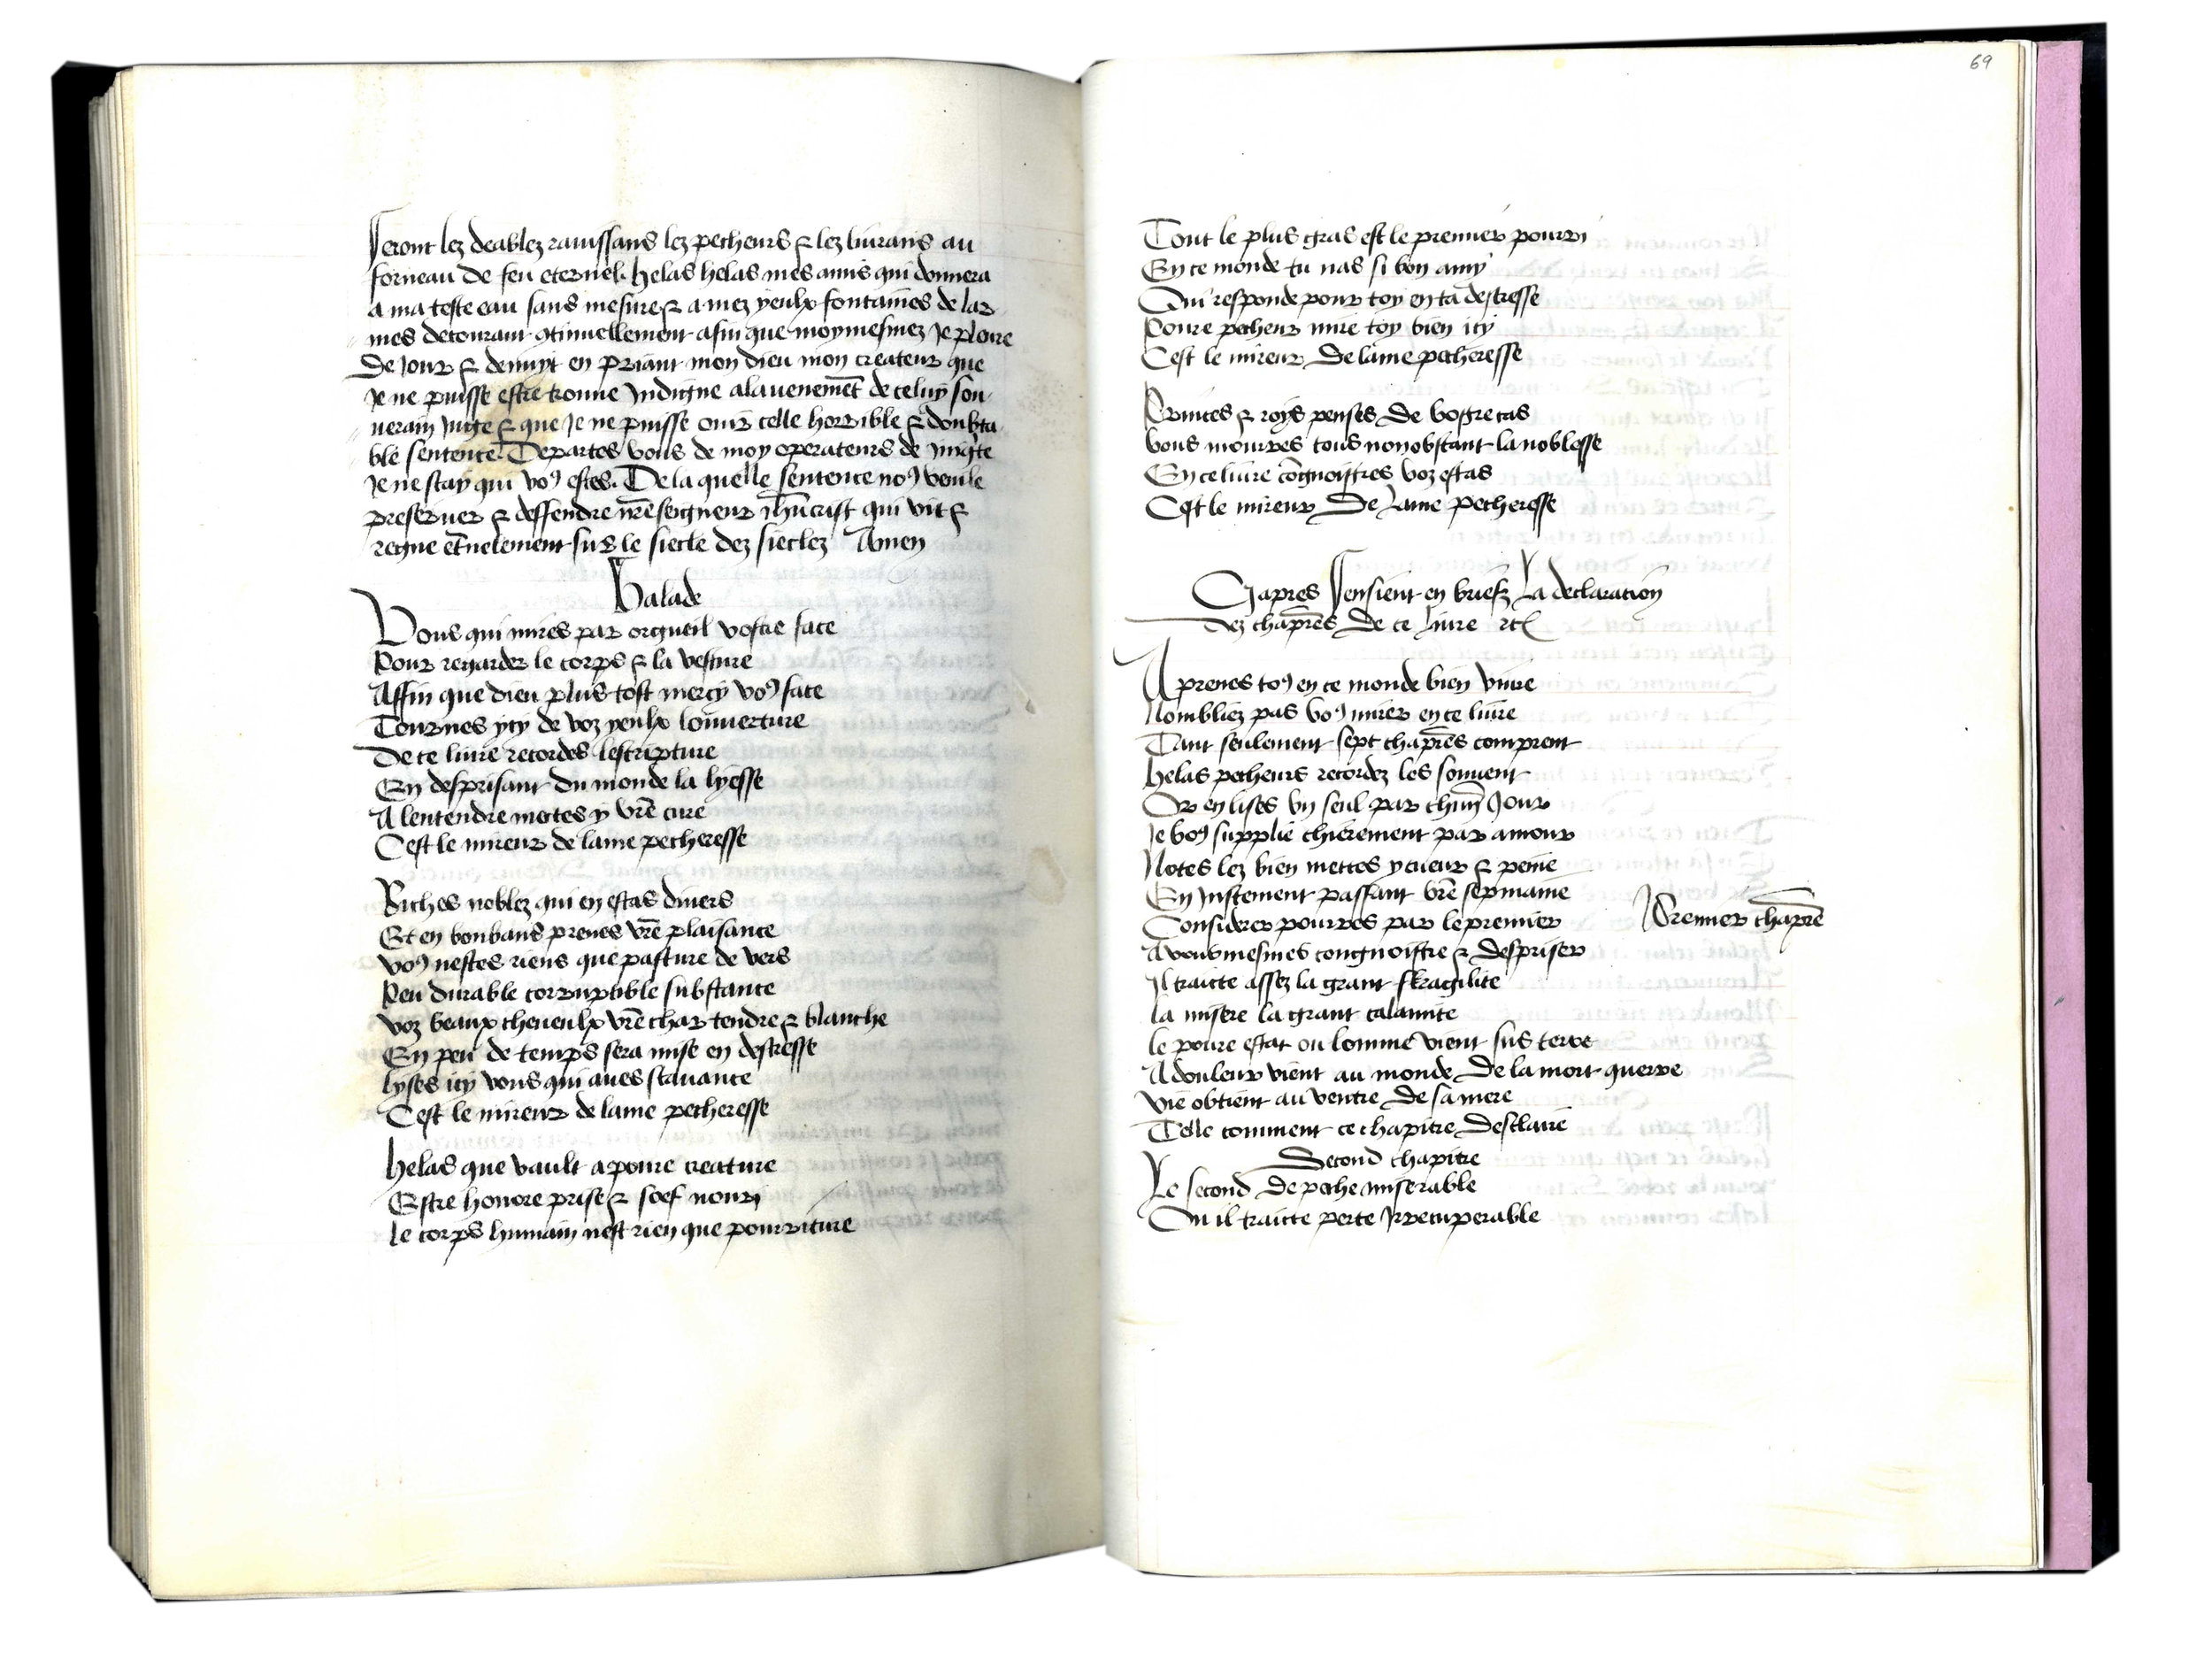 Seront lez deablez rauissans lez pecheurs & lez liurans au
forneau de feu eternel. helas helas mes amis qui donnera
a ma teste eau sans mesure & a mez yeulx fontaines de lar
mes decourant 9tinuellement afin que moymesmez Je ploure
De Jour & de nuyt en priant mon dieu mon createur que
Je ne puisse estre trouue Indigne alauenemēt de celuy sou
uerain Juge & que Je ne puisse ouir celle horrible & doubta
ble sentence Departes vous de moy operateurs de
Je ne scay qui vo9 estes. De la quelle sentence no9 veule
preseruer & deffendre nr̄e seigneur Jhūcrist qui vit &
regne et̄nelement sus le siecle dez sieclez Amen
Balade
Vous qui mires par orgueil vostre face
Pour regarder le corps & la vesture
Affin que dieu plus tost mercy vo9 face
Tournes ycy de voz yeulx louuerture
De ce liure recordes lescripture
En desprisant du monde la lyesse
A lentendre mettes y vr̄e cure
Cest le mireur de lame pecheresse
Riches noblez qui en estas diuers
Et en bonbans prenes vr̄e plaisance
vo9 nestes riens que pasture de vers
Peu durable corruptible substance
voz beaux cheueulx vr̄e char tendre & blanche
En peu de temps sera mise en destresse
lyses icy vous qui aues scauance
Cest le mireur de lame pecheresse
helas que vault a poure creature
Estre honore prise & soef nouri
le corps humain nest rien que pourriture
69
Tout le plus gras est le premier pourri
En ce monde tu nas si bon amy
Qui responde pour toy en ta destresse
Poure pecheur mire toy bien icy
Cest le mireur De lame pecheresse
Princes & roys penses De vostre cas
vous mourres tous nonobstant la noblesse
En ce liure cōgnoistres voz estas
Cest le mireur De Lame Pecheresse
Cy apres Sensuient en briefz La declaration
Dez chapr̄es De ce Liure etc
Aprenes to9 en ce monde bien viure
Nombliez pas vo9 mirer en ce liure
Tant seulement sept chapr̄es comprent
helas pecheurs recordez les souuent
Or en lises vn seul par chūn Jour
Je vo9 supplie chierement par amour
Notes lez bien mettes y cueur & peine
En Justement passant vr̄e sepmaine
Considerer pourres par le premier
Premier chapr̄e
A vousmesmes congnoistre & despriser
Il traicte assez la grant fragilite
la misere la grant calamite
le poure estat ou lomme vient sus terre
A douleur vient au monde De la mort querre
vie obtient au ventre De sa mere
Telle comment ce chapitre Desclaire
Second chapitre
Le second De peche miserable
Ou il traicte perte Irrecuperable